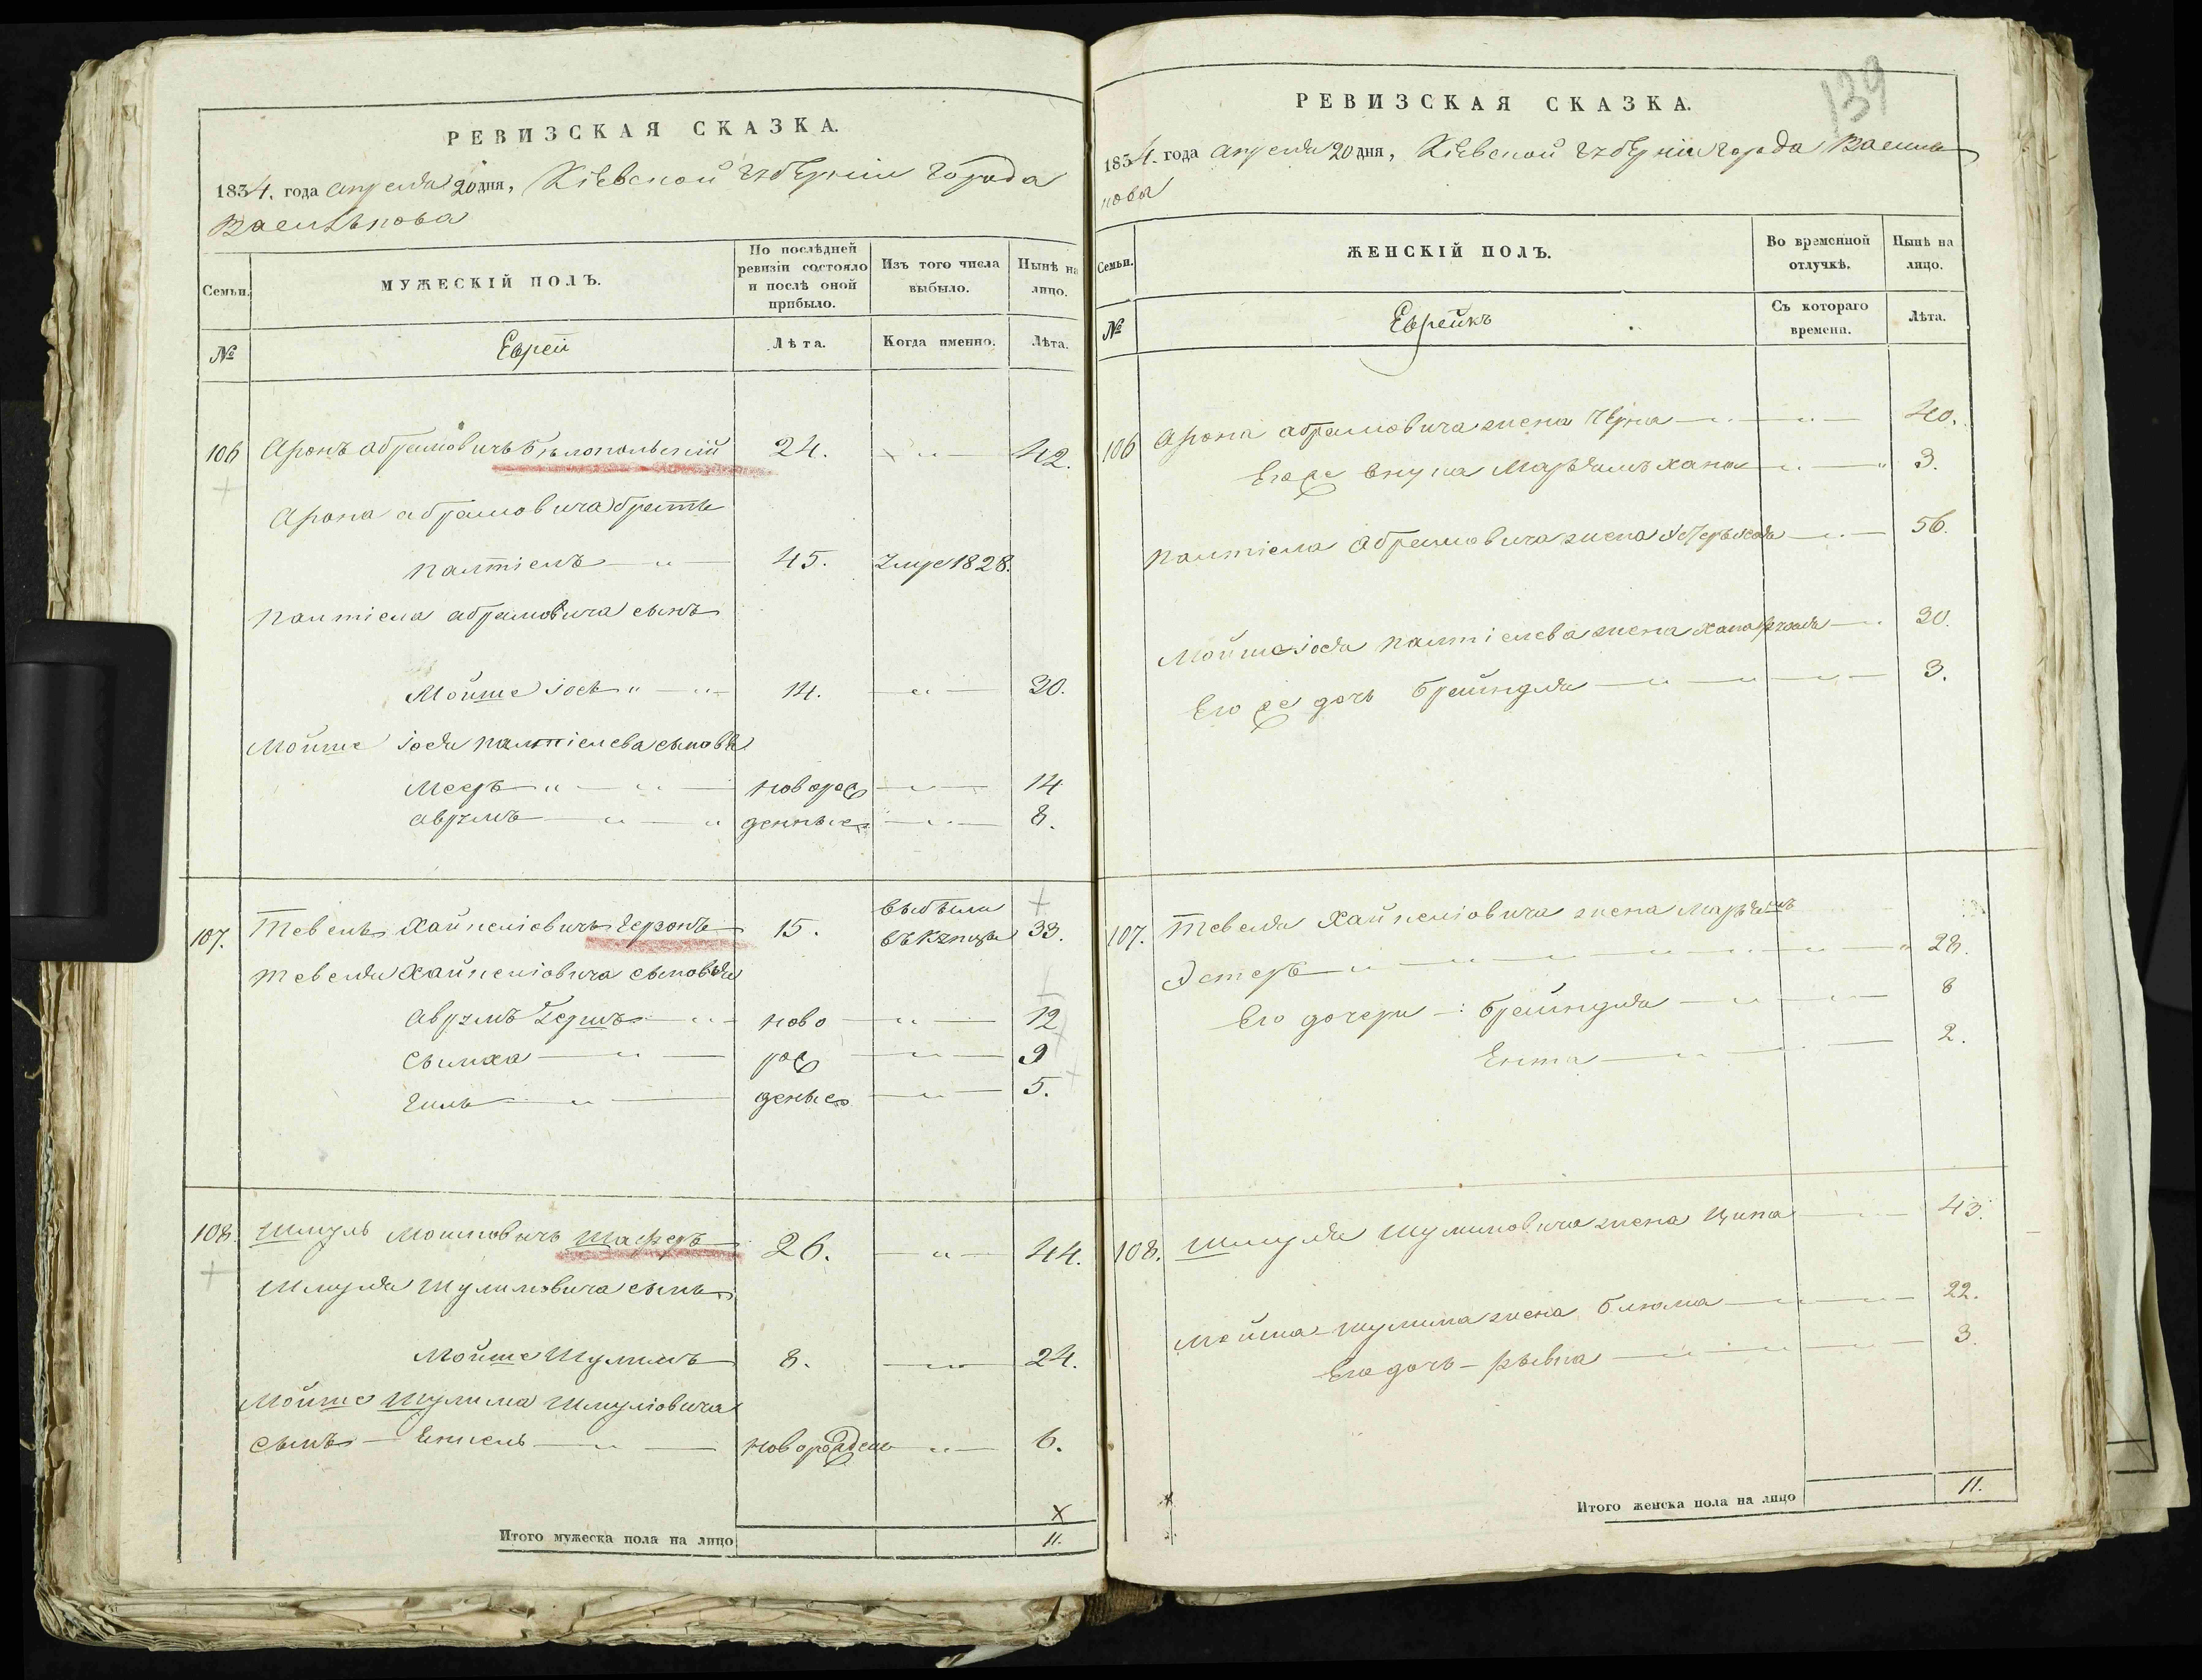 РЕВИЗСКАЯ СКАЗКА.
1834. года апреля 20 дня, Кіевской губерніи города
Василькова
Семьи.
МУЖЕСКІЙ ПОЛЪ.
По послѣдней ревизіи состояло и послѣ оной прибыло.
Изъ того числа выбыло.
Нынѣ на лицо.
№
Еврей
Лѣта.
Когда именно.
Лѣта.
106 Аронъ Абрамовичъ Бѣлопольскій 24. 42.
Арона абрамовича братъ
Палтіель 45. умре 1828.
Палтіела абрамовича сынъ
Мойше Іось 14. 30.
Мойше Іося Палтіелева сыновья
Мееръ новорож 14
Аврумъ денные 8.
выбыли
107. Тевель Хайкеліовичъ 15. въ купцы 33.
Тевеля Хайкеліовича сыновья
Аврумъ Гершъ ново 12
Сымха рож 9
деные 5.
108. Шмуль Мошковичъ 26. 44.
Шмуля Шулимовича сынъ
Мойше Шулимъ 8. 24.
Мойше Шулима Шмуліовича
сынъ Енкель новорожден 6.
Х
Итого мужеска пола на лицо 11.
139
РЕВИЗСКАЯ СКАЗКА.
1834. года апреля 20 дня, Кіевской губерніи города Василь
кова
Семьи.
ЖЕНСКІЙ ПОЛЪ.
Во временной отлучкѣ.
Нынѣ на лицо.
№
Евреикъ
Съ котораго времени.
Лѣта.
106 Арона абрамовича жена Черна 40.
Его же внука Марьямъ хана 3.
Палтіела Абрамовича жена 56.
Мойше Іося Палтіелева жена Хана 30.
Его же дочь Брейндля 3.
107. Тевеля Хайкеліовича жена Марьямъ
Эстеръ 28.
Его дочери: Брейндля 8
Ента 2.
108. Шмуля Шулимовича жена Ципа 43.
Мойша Шулима жена Блюма 22.
Его дочь – Рывка 3.
Итого женска пола на лицо 11.